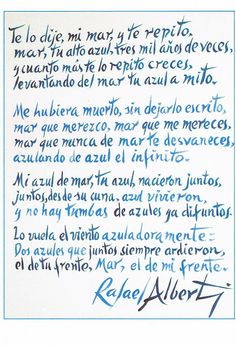 Te lo dije, mi mar, y te repito.
mar, tu alto azul. tres mil años de veces,
y cuanto más te lo repito creces,
levantando del mar tu azul a mito.
Me hubiera muerto, sin dejarlo escrito,
mar que merezco, mar que me mereces.
mar que nunca de mar te desvaneces,
azulando de azul el infinito.
Mi azul de mar, tu azul, nacieron juntos,
juntos, desde su cuna. azul vivieron,
y no hay tumbas de azules ya difuntos.
Lo vuela el viento azuladoramente:
Dos azules que juntos siempre ardieron,
el de tu frente, Mar, el de mi frente.
Rafael Alberti